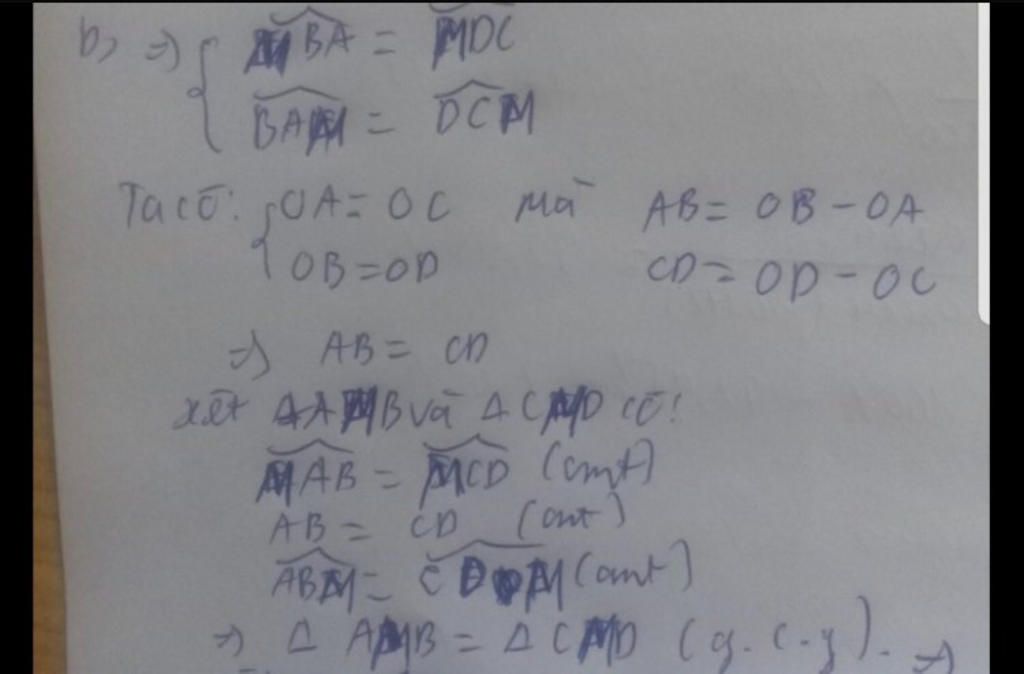 b, => { MBA = MDC
BAM = DCM
Ta có: { OA = OC mà AB = OB - OA
OB = OD CD = OD - OC
=> AB = CD
xét ΔAMB và ΔCMD có:
MAB = MCD (cmt)
AB = CD (cmt)
ABM = CDM (cmt)
=> Δ AMB = Δ CMD (g.c.g). =>